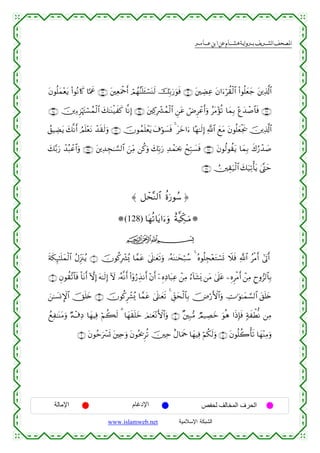 المصحف الشريف برواية هشام عن ابن عامر
ٱلَّذِينَ جَعَلُوا۟ ٱلْقُرْءَانَ عِضِينَ فَوَرَبِّكَ لَنَسْـَٔلَنَّهُمْ أَجْمَعِينَ عَمَّا كَانُوا۟ يَعْمَلُونَ
فَٱصْدَعْ بِمَا تُؤْمَرُ وَأَعْرِضْ عَنِ ٱلْمُشْرِكِينَ إِنَّا كَفَيْنَـٰكَ ٱلْمُسْتَهْزِءِينَ
ٱلَّذِينَ يَجْعَلُونَ مَعَ ٱللَّهِ إِلَـٰهًا ءَاخَرَ فَسَوْفَ يَعْلَمُونَ وَلَقَدْ نَعْلَمُ أَنَّكَ يَضِيقُ
صَدْرُكَ بِمَا يَقُولُونَ فَسَبِّحْ بِحَمْدِ رَبِّكَ وَكُن مِّنَ ٱلسَّـٰجِدِينَ وَٱعْبُدْ رَبَّكَ
حَتَّىٰ يَأْتِيَكَ ٱلْيَقِينُ
﴿ سُورَةُ ٱلنَّحْلِ ﴾
* مَكِّيَّةٌ وَءَايَاتُهَا (128) *
بِسْمِ ٱللَّهِ ٱلرَّحْمَـٰنِ ٱلرَّحِيمِ
أَتَىٰ أَمْرُ ٱللَّهِ فَلَا تَسْتَعْجِلُوهُ سُبْحَـٰنَهُۥ وَتَعَـٰلَىٰ عَمَّا يُشْرِكُونَ يُنَزِّلُ ٱلْمَلَـٰٓئِكَةَ
بِٱلرُّوحِ مِنْ أَمْرِهِۦ عَلَىٰ مَن يَشَآءُ مِنْ عِبَادِهِۦٓ أَنْ أَنذِرُوٓا۟ أَنَّهُۥ لَآ إِلَـٰهَ إِلَّآ أَنَا۠ فَٱتَّقُونِ
خَلَقَ ٱلسَّمَـٰوَٰتِ وَٱلْأَرْضَ بِٱلْحَقِّ تَعَـٰلَىٰ عَمَّا يُشْرِكُونَ خَلَقَ ٱلْإِنسَـٰنَ
مِن نُّطْفَةٍ فَإِذَا هُوَ خَصِيمٌ مُّبِينٌ وَٱلْأَنْعَـٰمَ خَلَقَهَا لَكُمْ فِيهَا دِفْءٌ وَمَنَـٰفِعُ
وَمِنْهَا تَأْكُلُونَ وَلَكُمْ فِيهَا جَمَالٌ حِينَ تُرِيحُونَ وَحِينَ تَسْرَحُونَ
الحرف المخالف لحفص الإدغام الإمالة
الشبكة الإسلامية www.islamweb.net